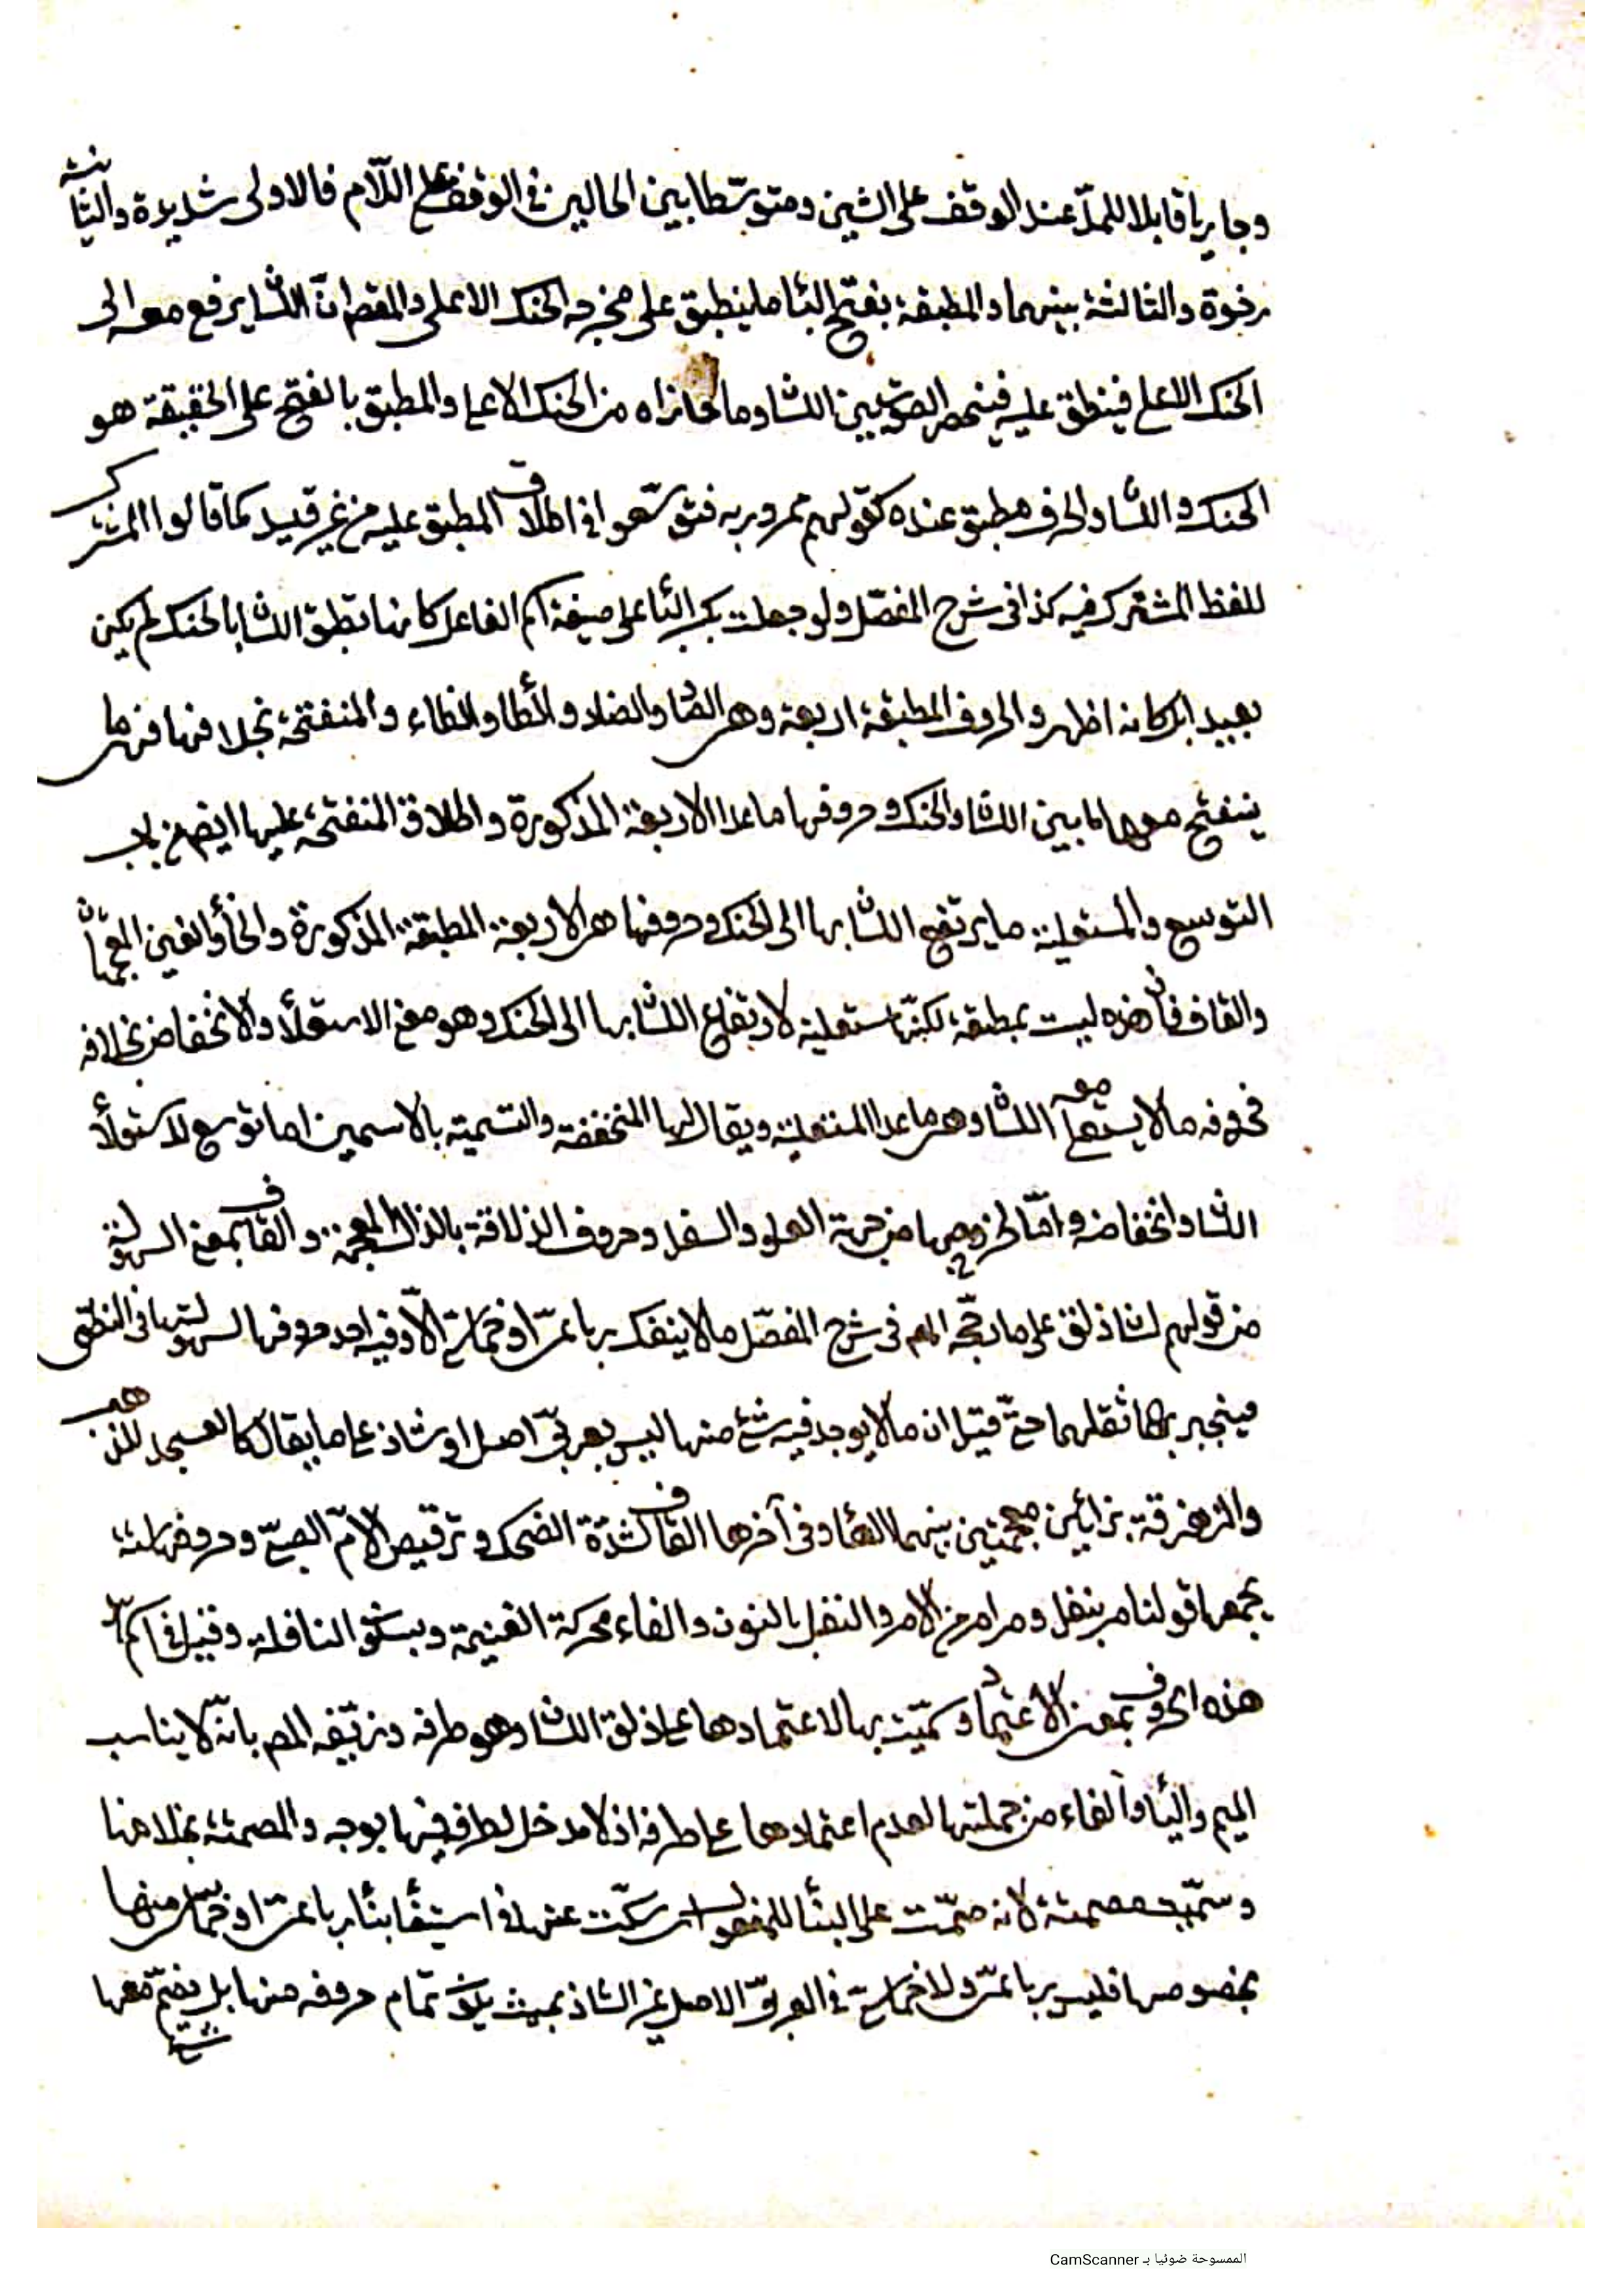 وجاريا قابلا للمدّ عند الوقف على الشين ومتوسّطا بين الحالين فى الوقف على اللّام فالاولى شديدة والثانية
رخوة والثالثة بينهما والمطبقة بفتح الباء ما ينطبق على مخرجه الحنك الاعلى والمقصود انّ اللسان يرفع معه الى
الحنك الاعلى فينطبق عليه فينحصر الصوت بين اللسان وما حاذاه من الحنك الاعلى والمطبق بالفتح على الحقيقة هو
الحنك و اللسان والحرف مطبق عنده كقولهم ممرور به فتوسّعوا فى اطلاق المطبق عليه من غير قيد كما قالوا المشترك
للفظ المشترك فيه كذا فى شرح المفصّل ولو جعلت بكسر الباء على صيغة اسم الفاعل كانها تطبق اللسان بالحنك لم يكن
بعيدا بل كانه اظهر والحروف المطبقة اربعة وهى الصاد والضاد والطاء والظاء والمنفتحة بخلافها فهى ما
ينفتح معها ما بين اللسان والحنك وحروفها ما عدا الاربعة المذكورة واطلاق المنفتحة عليها ايضا من باب
التوسع والمستعلية ما يرتفع اللسان بها الى الحنك وحروفها هى الاربعة المطبقة المذكورة والخاء والغين المعجمتان
والقاف فان هذه ليست بمطبقة لكنّها مستعلية لارتفاع اللسان بها الى الحنك وهو معنى الاستعلاء والانخفاض بخلافه
فحروفه ما لا يستعلى معه اللسان وهى ما عدا المستعلية ويقال لها المنخفضة والتسمية بالاسمين اما توسع لاستعلاء
اللسان وانخفاضه وامّا لخروجها من جهة العلو والسفل وحروف الذلاقة بالذال المعجمة والقاف بمعنى السهولة
من قولهم لسان ذلق على ما رجّحه المص فى شرح المفصّل ما لا ينفك رباعىّ او خماسىّ الّا وفيه احد حروفها لسهولتها فى النطق
فينجبر بها ثقلهما حتّى قيل ان ما لا يوجد فيه شئ منها ليس بعربىّ اصل او شاذ على ما يقال كالعسجد للذهب
والزهزقة بزائين معجمتين بينهما الهاء وفى آخرها القاف لشدّة الضحك وترقيص الامّ الصبىّ وحروفها ستة
يجمعها قولنا مر بنفل ومر امر من الامر والنفل بالنون والفاء محركة الغنيمة وبسكون النافلة وقيل فى اسم
هذه الحروف بمعنى الاعتماد وسمّيت بها لاعتمادها على ذلق اللسان وهو طرفه وزيّفه المص بانّه لا يناسب
الميم والباء والفاء من جملتها لعدم اعتمادها على طرفه اذ لا مدخل لطرفه فيها بوجه والمصمتة بخلافها
وسمّيت مصمتة لانه صمّت على البناء للمفعول اى سكّت عنها فى استيفاء بناء رباعىّ او خماسىّ منها
بخصوصها فليس رباعىّ ولا خماسىّ فى العربىّ الاصل غير الشاذ بحيث يكون تمام حروفه منها بل يضمّ معها
شئ
الممسوحة ضوئيا بـ CamScanner